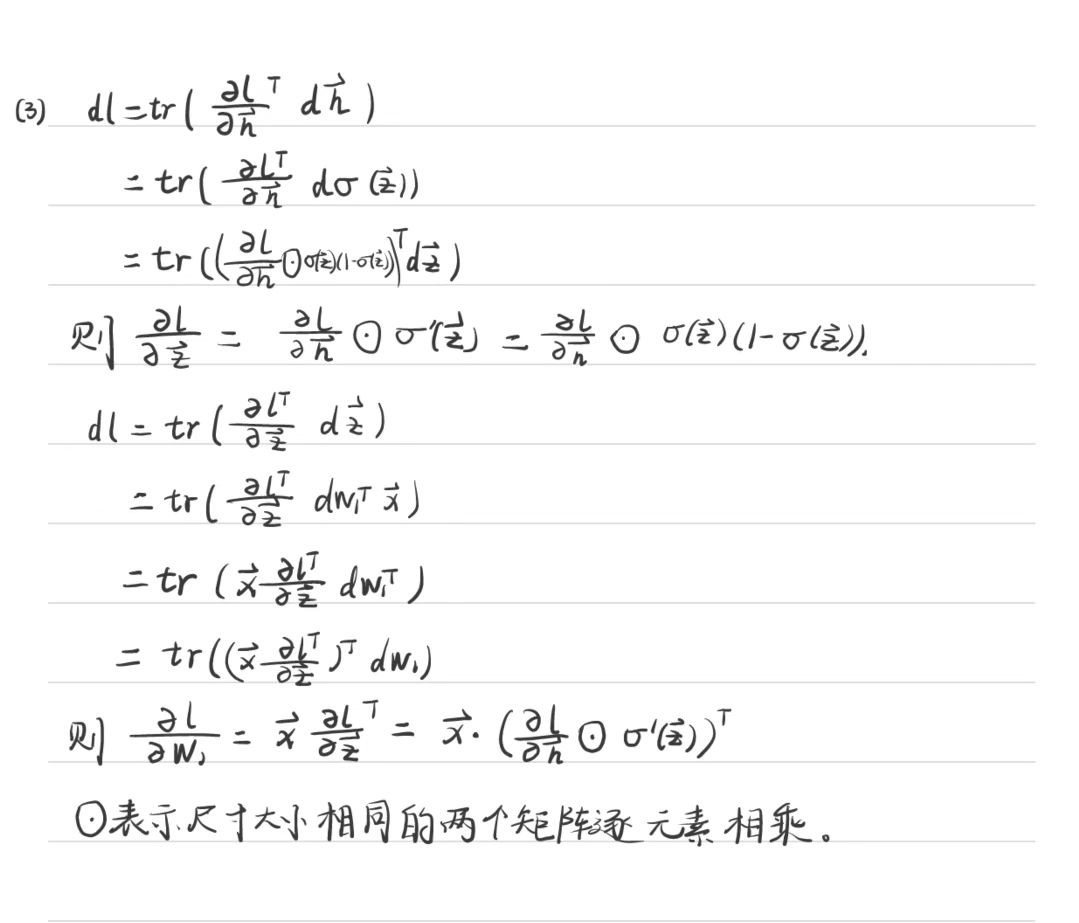 (3) dl = tr( ∂l/∂h⃗ ᵀ dh⃗ )
= tr( ∂l/∂h⃗ ᵀ dσ(z⃗))
= tr((∂l/∂h⃗ ⊙ σ(z⃗)(1-σ(z⃗)))ᵀ dz⃗ )
则 ∂l/∂z⃗ = ∂l/∂h⃗ ⊙ σ'(z⃗) = ∂l/∂h⃗ ⊙ σ(z⃗)(1-σ(z⃗)).
dl = tr( ∂l/∂z⃗ ᵀ dz⃗ )
= tr( ∂l/∂z⃗ ᵀ dW₁ᵀ x⃗ )
= tr ( x⃗ ∂l/∂z⃗ ᵀ dW₁ᵀ )
= tr((x⃗ ∂l/∂z⃗ ᵀ )ᵀ dW₁)
则 ∂l/∂W₁ = x⃗ ∂l/∂z⃗ ᵀ = x⃗ · (∂l/∂h⃗ ⊙ σ'(z⃗))ᵀ
⊙表示尺寸大小相同的两个矩阵逐元素相乘。